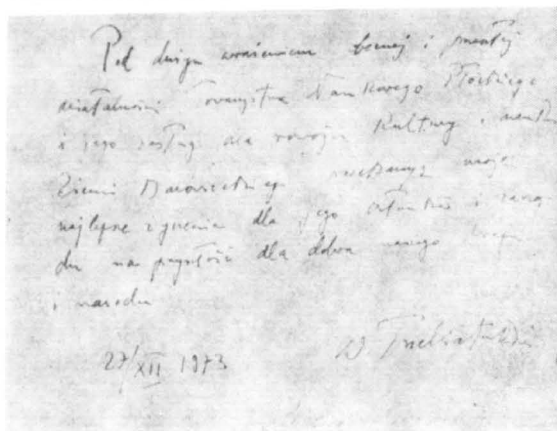 Pod dużym wrażeniem bornej i
działalności Towarzystwa Naukowego Płockiego
i jego zasług dla rozwoju kultury i nauki
Ziemi Mazowieckiej
najlepsze życzenia dla jego członków i zarzą
du na przyszłość dla dobra naszego kraju
i narodu
27/XII 1973 W Trzebiatowski